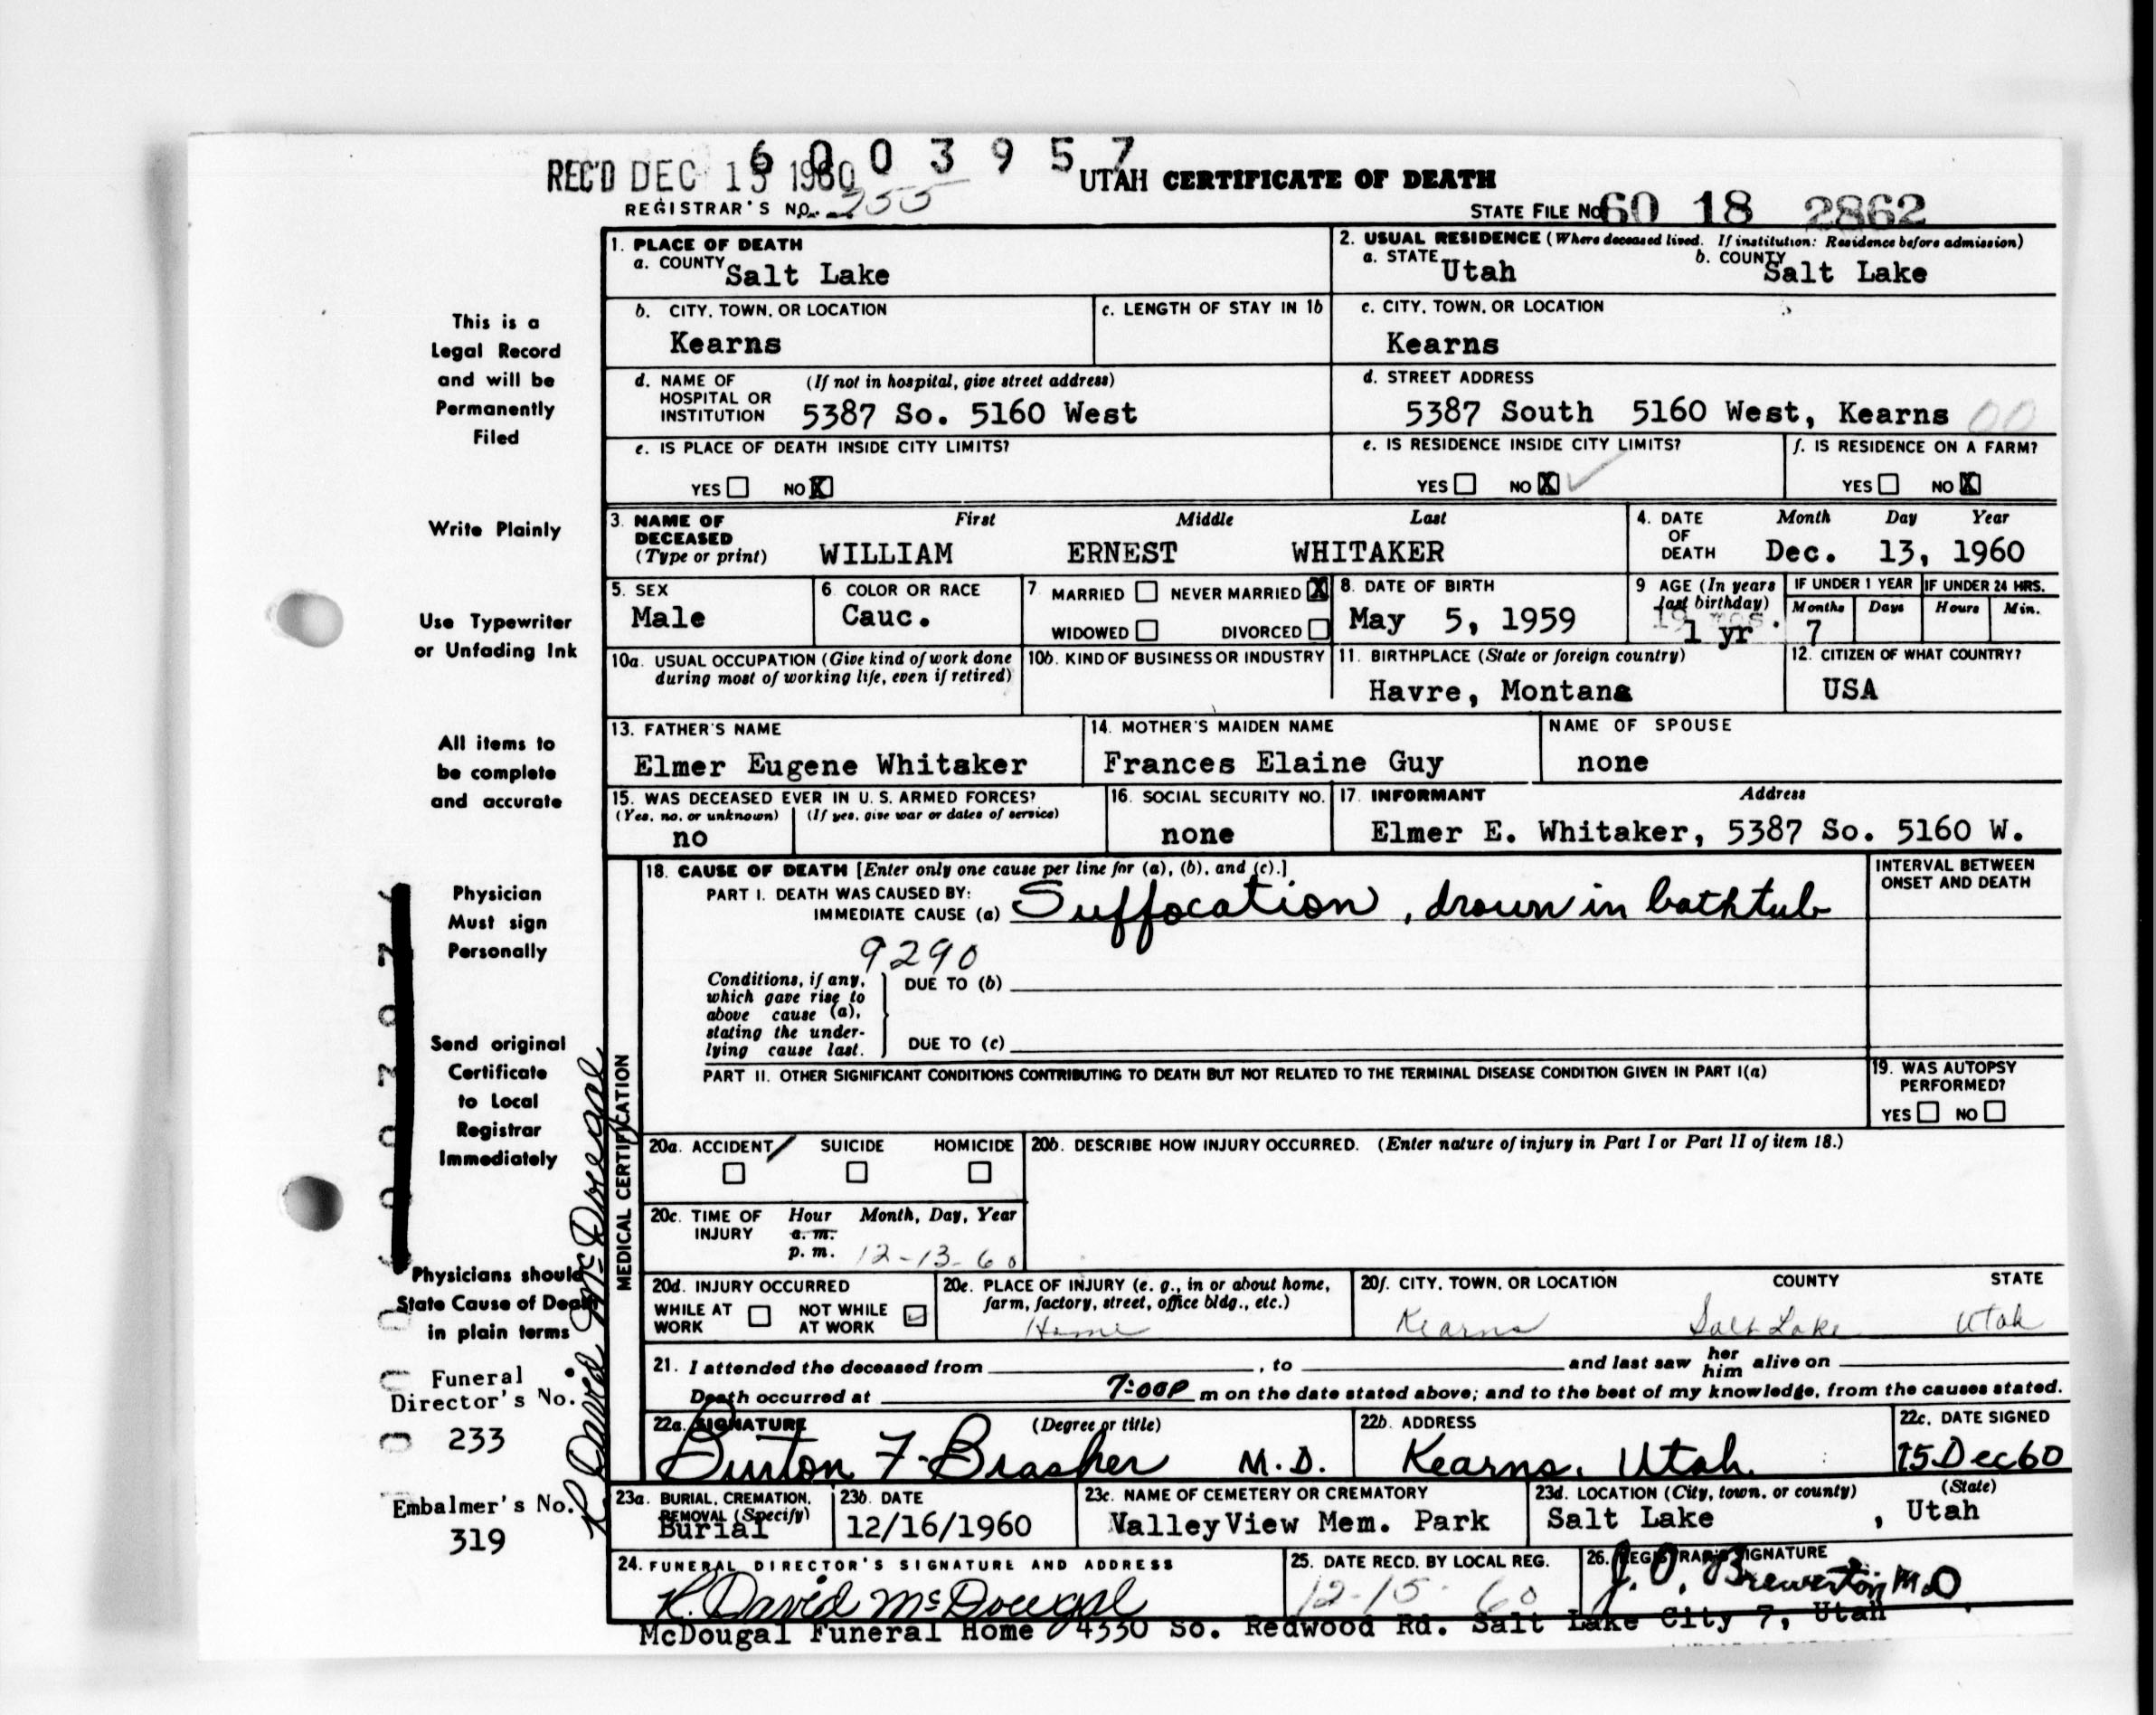 6003957
REC'D DEC 15 1960
UTAH CERTIFICATE OF DEATH
REGISTRAR'S NO.
STATE FILE NO. 60 18 2862
1. PLACE OF DEATH
a. COUNTY Salt Lake
2. USUAL RESIDENCE (Where deceased lived. If institution: Residence before admission)
a. STATE Utah b. COUNTY Salt Lake
b. CITY, TOWN, OR LOCATION Kearns
c. LENGTH OF STAY IN 1b
c. CITY, TOWN, OR LOCATION Kearns
d. NAME OF HOSPITAL OR INSTITUTION (If not in hospital, give street address) 5387 So. 5160 West
d. STREET ADDRESS 5387 South 5160 West, Kearns 00
e. IS PLACE OF DEATH INSIDE CITY LIMITS?
YES NO X
e. IS RESIDENCE INSIDE CITY LIMITS?
YES NO X
f. IS RESIDENCE ON A FARM?
YES NO X
3. NAME OF DECEASED (Type or print) First Middle Last
WILLIAM ERNEST WHITAKER
4. DATE OF DEATH Month Day Year
Dec. 13, 1960
5. SEX Male
6. COLOR OR RACE Cauc.
7 MARRIED NEVER MARRIED X
WIDOWED DIVORCED
8. DATE OF BIRTH May 5, 1959
9 AGE (In years last birthday) 1 yr
IF UNDER 1 YEAR Months 7 Days
IF UNDER 24 HRS. Hours Min.
10a. USUAL OCCUPATION (Give kind of work done during most of working life, even if retired)
10b. KIND OF BUSINESS OR INDUSTRY
11. BIRTHPLACE (State or foreign country) Havre, Montana
12. CITIZEN OF WHAT COUNTRY? USA
13. FATHER'S NAME Elmer Eugene Whitaker
14. MOTHER'S MAIDEN NAME Frances Elaine Guy
NAME OF SPOUSE none
15. WAS DECEASED EVER IN U. S. ARMED FORCES?
(Yes, no, or unknown) (If yes, give war or dates of service)
no
16. SOCIAL SECURITY NO. none
17. INFORMANT Address
Elmer E. Whitaker, 5387 So. 5160 W.
18. CAUSE OF DEATH [Enter only one cause per line for (a), (b), and (c).]
PART I. DEATH WAS CAUSED BY:
IMMEDIATE CAUSE (a) Suffocation, drown in bathtub
INTERVAL BETWEEN ONSET AND DEATH
9290
Conditions, if any, which gave rise to above cause (a), stating the underlying cause last.
DUE TO (b)
DUE TO (c)
PART II. OTHER SIGNIFICANT CONDITIONS CONTRIBUTING TO DEATH BUT NOT RELATED TO THE TERMINAL DISEASE CONDITION GIVEN IN PART I(a)
19. WAS AUTOPSY PERFORMED?
YES NO
20a. ACCIDENT SUICIDE HOMICIDE
20b. DESCRIBE HOW INJURY OCCURRED. (Enter nature of injury in Part I or Part II of item 18.)
20c. TIME OF INJURY Hour Month, Day, Year
a. m.
p. m. 12-13-60
20d. INJURY OCCURRED
WHILE AT WORK NOT WHILE AT WORK
20e. PLACE OF INJURY (e. g., in or about home, farm, factory, street, office bldg., etc.)
Home
20f. CITY, TOWN, OR LOCATION COUNTY STATE
Kearns Salt Lake Utah
21. I attended the deceased from , to and last saw her him alive on
Death occurred at 7:00P m on the date stated above; and to the best of my knowledge, from the causes stated.
22a. SIGNATURE (Degree or title)
Burton F. Brasher M.D.
22b. ADDRESS Kearns, Utah
22c. DATE SIGNED 15 Dec 60
23a. BURIAL, CREMATION, REMOVAL (Specify) Burial
23b. DATE 12/16/1960
23c. NAME OF CEMETERY OR CREMATORY Valley View Mem. Park
23d. LOCATION (City, town, or county) (State)
Salt Lake , Utah
24. FUNERAL DIRECTOR'S SIGNATURE AND ADDRESS
R. David McDougal
25. DATE RECD. BY LOCAL REG. 12-15-60
26. REGISTRAR'S SIGNATURE
J. O. Brewerton M.D
McDougal Funeral Home 4330 So. Redwood Rd. Salt Lake City 7, Utah
This is a
Legal Record
and will be
Permanently
Filed
Write Plainly
Use Typewriter
or Unfading Ink
All items to
be complete
and accurate
Physician
Must sign
Personally
Send original
Certificate
to Local
Registrar
Immediately
Physicians should
State Cause of Death
in plain terms
Funeral
Director's No.
233
Embalmer's No.
319
R. David McDougal
MEDICAL CERTIFICATION